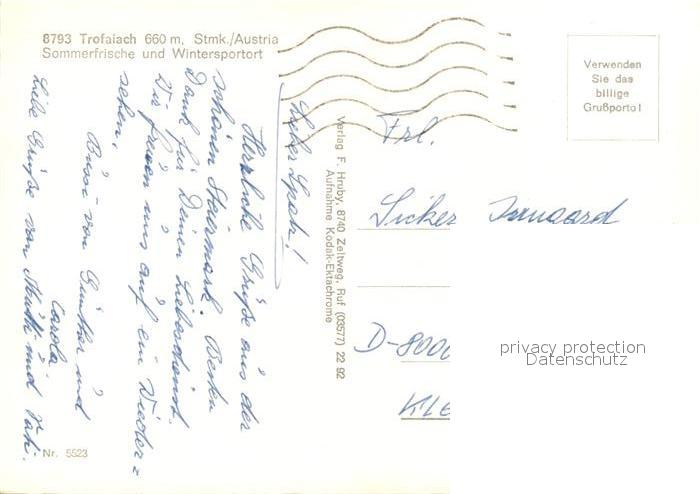 8793 Trofaiach 660 m, Stmk./Austria
Sommerfrische und Wintersportort
Verwenden
Sie das
billige
Grußporto!
Herzliche Grüße aus der
schönen Steiermark. Besten
Dank für Deinen Liebesdienst.
Wir freuen uns auf ein Wieder=
sehen.
Bussi von Günther und
Carola
Liebe Grüße von Mutti und Vati.
Verlag F. Hruby, 8740 Zeltweg, Ruf (03577) 22 92
Aufnahme Kodak-Ektachrome
Frl.
Irmgard
D-800
privacy protection
Datenschutz
Nr. 5523